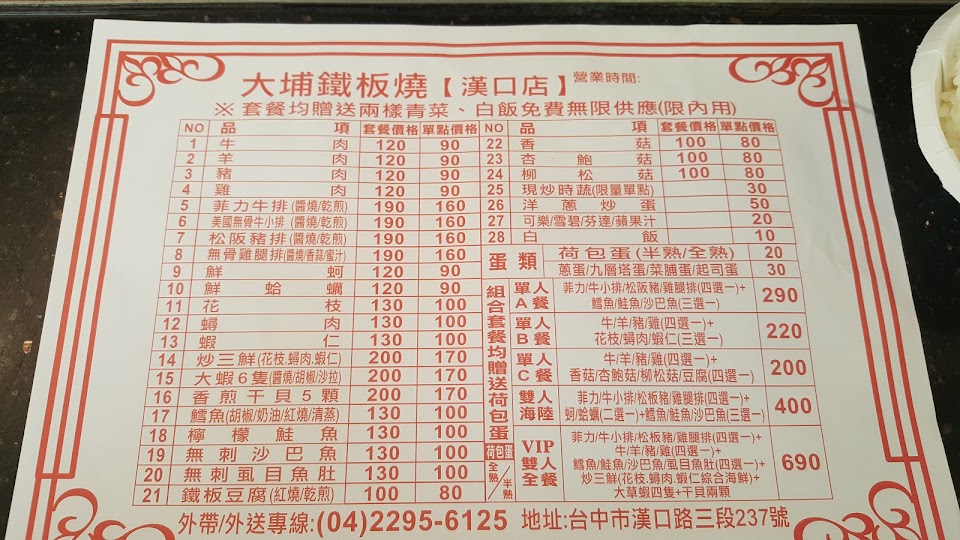 大埔鐵板燒【漢口店】營業時間:
※ 套餐均贈送兩樣青菜、白飯免費無限供應(限內用)
NO 品項 套餐價格 單點價格
1 牛肉 120 90
2 羊肉 120 90
3 豬肉 120 90
4 雞肉 120 90
5 菲力牛排(醬燒/乾煎) 190 160
6 美國無骨牛小排(醬燒/乾煎) 190 160
7 松阪豬排(醬燒/乾煎) 190 160
8 無骨雞腿排(醬燒/香蒜/蜜汁) 190 160
9 鮮蚵 120 90
10 鮮蛤蠣 120 90
11 花枝 130 100
12 蟳肉 130 100
13 蝦仁 130 100
14 炒三鮮(花枝.蟳肉.蝦仁) 200 170
15 大蝦6隻(醬燒/胡椒/沙拉) 200 170
16 香煎干貝5顆 200 170
17 鱈魚(胡椒/奶油/紅燒/清蒸) 130 100
18 檸檬鮭魚 130 100
19 無刺沙巴魚 130 100
20 無刺虱目魚肚 130 100
21 鐵板豆腐(紅燒/乾煎) 100 80
NO 品項 套餐價格 單點價格
22 香菇 100 80
23 杏鮑菇 100 80
24 柳松菇 100 80
25 現炒時蔬(限量單點) 30
26 洋蔥炒蛋 50
27 可樂/雪碧/芬達/蘋果汁 20
28 白飯 10
蛋類 荷包蛋(半熟/全熟) 20
蔥蛋/九層塔蛋/菜脯蛋/起司蛋 30
組合套餐均贈送荷包蛋
荷包蛋 全熟/半熟
單人A餐 菲力/牛小排/松阪豬/雞腿排(四選一)+
鱈魚/鮭魚/沙巴魚(三選一) 290
單人B餐 牛/羊/豬/雞(四選一)+
花枝/蟳肉/蝦仁(三選一) 220
單人C餐 牛/羊/豬/雞(四選一)+
香菇/杏鮑菇/柳松菇/豆腐(四選一) 200
雙人海陸 菲力/牛小排/松板豬/雞腿排(四選一)+
蚵/蛤蠣(二選一)+鱈魚/鮭魚/沙巴魚(三選一) 400
VIP雙人全餐 菲力/牛小排/松板豬/雞腿排(四選一)+
牛/羊/豬/雞(四選一)+
鱈魚/鮭魚/沙巴魚/虱目魚肚(四選一)+
炒三鮮(花枝.蟳肉.蝦仁綜合海鮮)+
大草蝦四隻+干貝兩顆 690
外帶/外送專線:(04)2295-6125 地址:台中市漢口路三段237號